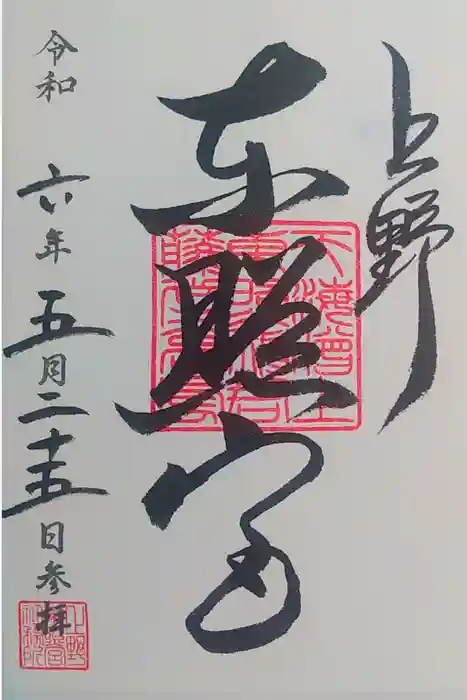 上野
東照宮
令和六年五月二十五日参拝